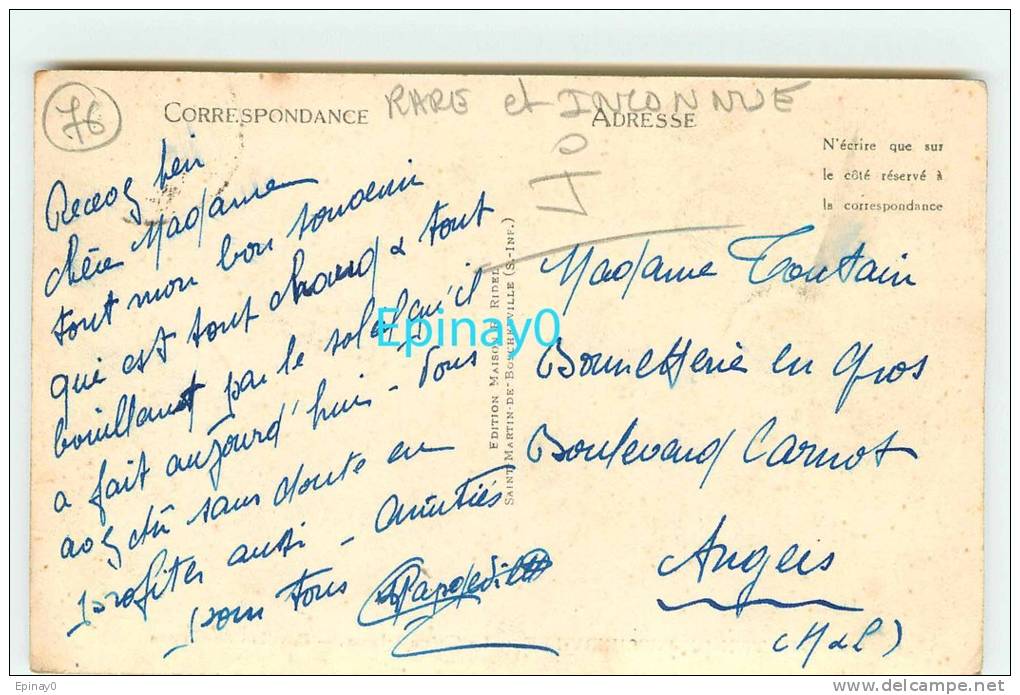 76
CORRESPONDANCE
RARE et INCONNUE
ADRESSE
40
N'écrire que sur
le côté réservé à
la correspondance
Recevez bien
chère Madame
tout mon bon souvenir
qui est tout chaud & tout
bouillant par le soleil qu'il
a fait aujourd'hui - Vous
avez dû sans doute en
profiter aussi - Amitiés
pour tous
EDITION MAISON RIDEL
SAINT-MARTIN-DE-BOSCHERVILLE (S.-INF.)
Madame Toutain
Bonnetterie en Gros
Boulevard Carnot
Angers
(M & L)
Epinay0
Epinay0
www.delcampe.net